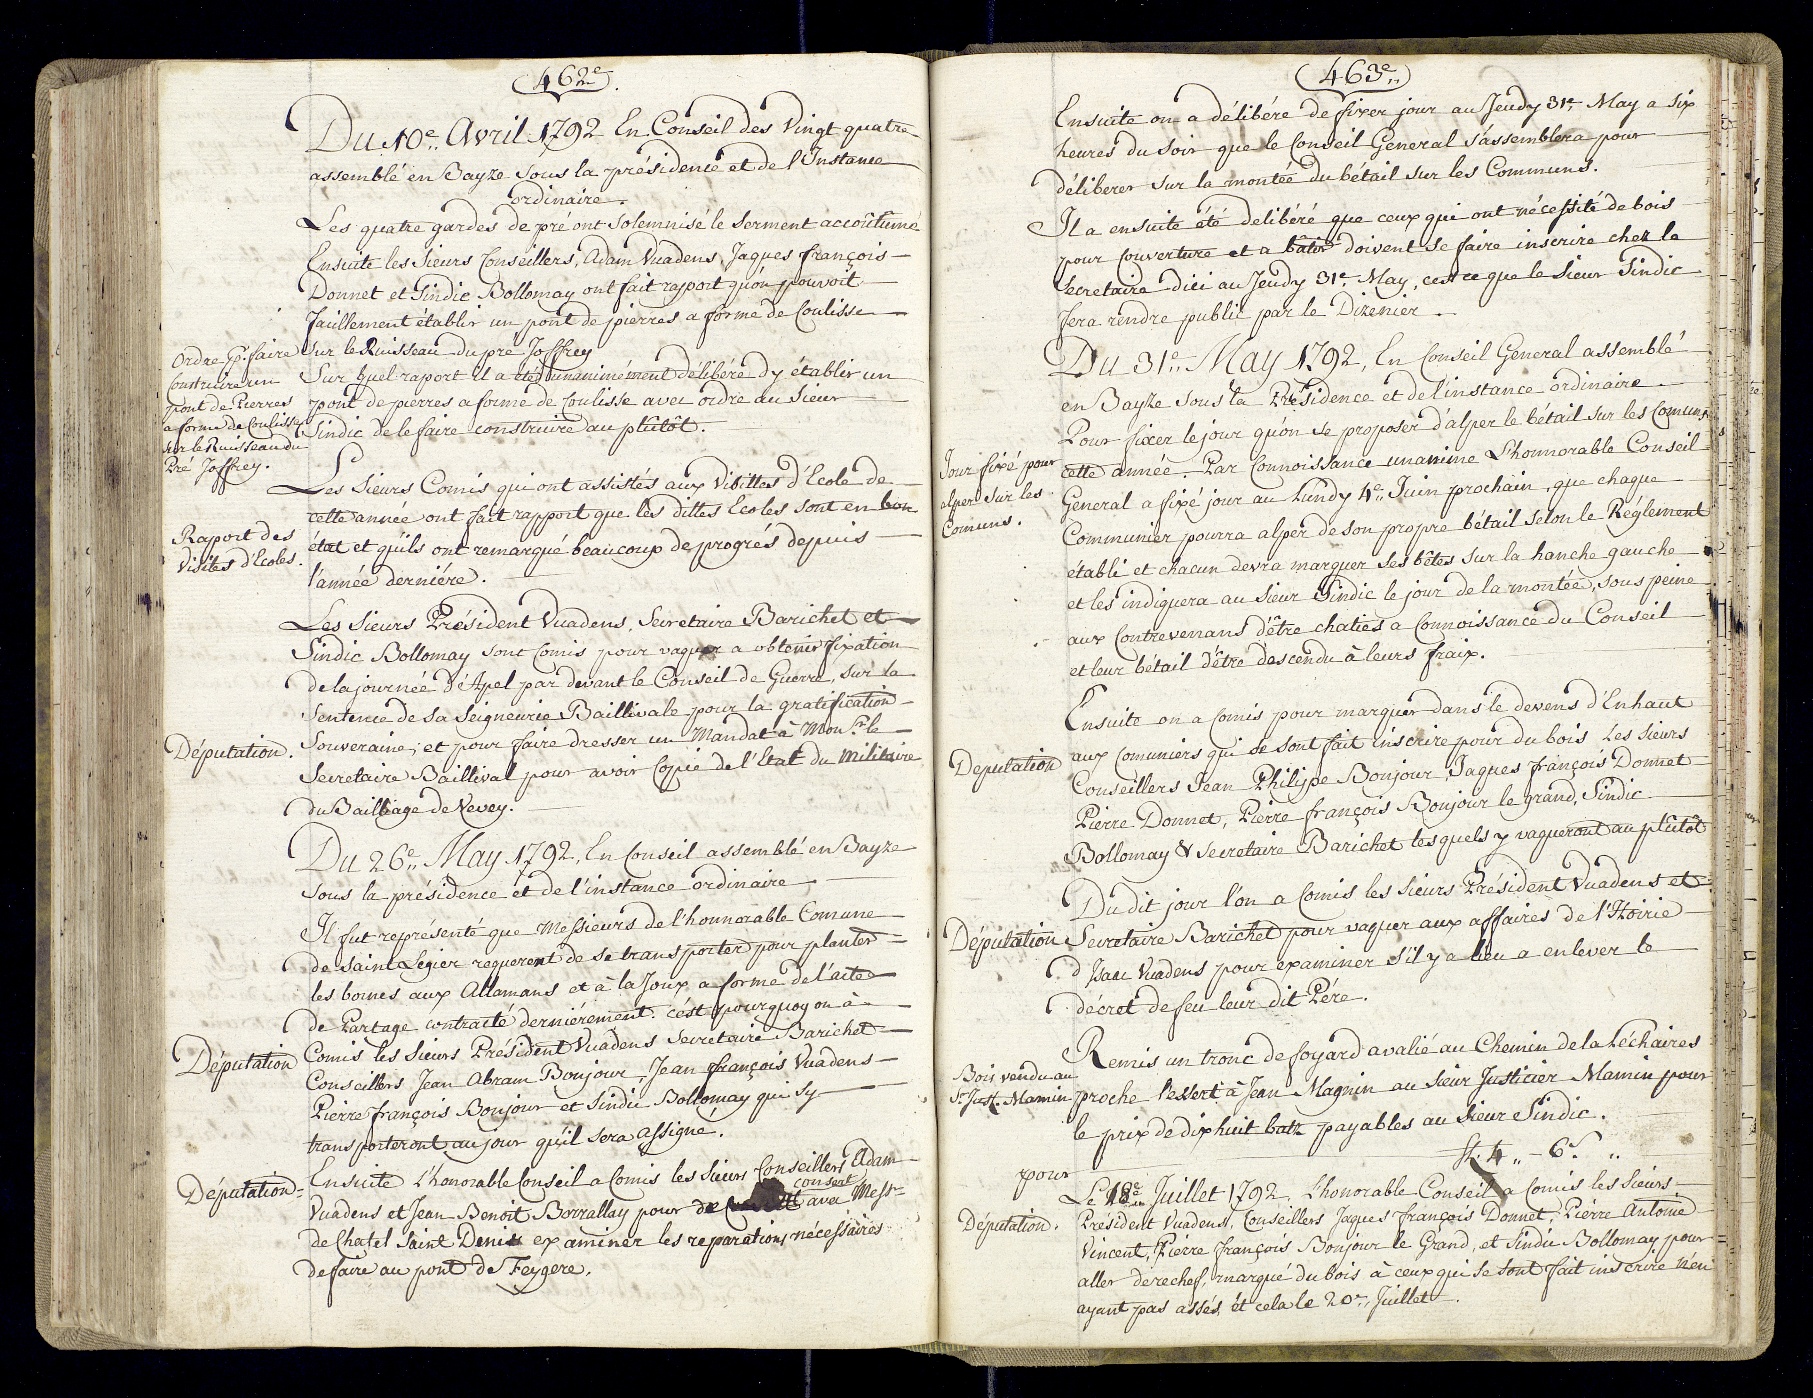 (462e.)
Du 10e. Avril 1792 En Conseil des Vingt quatre
assemblé en Bayze sous la présidence et de l'Instance
ordinaire.
Les quatre gardes de pré ont solemnisé le serment accoûtumé
Ensuite les Sieurs Conseillers, Adam Vuadens, Jaques françois
Donnet et Sindic Bollomay ont fait rapport qu'on pouvoit
facillement établir un pont de pierres a forme de Coulisse
sur le Ruisseau du pre Joffrey
Ordre p.r faire
Construire un
pont de Pierres
a forme de Coulisse
sur le Ruisseau du
Pré Joffrey.
Sur quel raport il a été unanimément délibéré d'y établir un
pont de pierres a forme de Coulisse avec ordre au Sieur
Sindic de le faire construire au plutôt.
Les Sieurs Comis qui ont assistés aux Visittes d'Ecole de
cette année ont fait rapport que les dittes Ecoles sont en bon
état et qu'ils ont remarqué beaucoup de progrés depuis
l'année derniére.
Raport des
Visites d'Ecoles.
Les Sieurs Président Vuadens, Secretaire Barichet et
Sindic Bollomay sont Comis pour vaquer a obtenir fixation
de la journée d'Apel par devant le Conseil de Guerre, sur la
Sentence de sa Seigneurie Baillivale pour la gratification
Souveraine, et pour faire dresser un Mandat à Mons.r le
Secretaire Baillival pour avoir Copie de l'Etat du Militaire
du Bailliage de Vevey.
Députation.
Du 26e. May 1792, En Conseil assemblé en Bayze
sous la présidence et de l'instance ordinaire
Il fut représenté que Messieurs de l'honnorable Comune
de Saint Legier requerent de se transporter pour planter
les bornes aux Allamans et à la Joux a forme de l'acte
de Partage contracté derniérement. c'est pourquoy on a
Comis les Sieurs Président Vuadens Secretaire Barichet
Conseillers Jean Abram Bonjour, Jean françois Vuadens
Pierre françois Bonjour et Sindic Bollomay qui s'y
transporteront au jour qu'il sera assigné.
Députation
Ensuite L'honorable Conseil a Comis les Sieurs Conseillers Adam
Vuadens et Jean Benoit Borrallay pour de concert avec Mess.rs
de Chatel Saint Denis examiner les reparations nécessaires
de faire au pont de Feygere.
Députation
(463e.)
Ensuite on a délibéré de fixer jour au Jeudy 31e. May a six
heures du soir que le Conseil General s'assemblera pour
déliberer sur la montée du bétail sur les Communs.
Il a ensuite été delibéré que ceux qui ont nécessité de bois
pour couverture et a bâtir doivent se faire inscrire chez le
Secretaire d'ici au Jeudy 31e. May, cest ce que le Sieur Sindic
fera rendre public par le Dizenier.
Du 31e. May 1792, En Conseil General assemblé
en Bayze sous la Présidence et de l'instance ordinaire
Pour fixer le jour qu'on se proposer d'alper le bétail sur les Comuns
cette année. Par Connoissance unanime L'honnorable Conseil
General a fixé jour au Lundy 4e. Juin prochain, que chaque
Communier pourra alper de son propre bétail selon le Réglement
établi et chacun devra marquer ses bêtes sur la hanche gauche
et les indiquera au Sieur Sindic le jour de la montée, sous peine
aux Contrevenans d'être chatiés a Connoissance du Conseil
et leur bétail d'être descendu à leurs fraix.
Jour fixé pour
alper sur les
Comuns.
Ensuite on a Comis pour marquer dans le devens d'Enhaut
aux Comuniers qui se sont fait inscrire pour du bois Les Sieurs
Conseillers Jean Philippe Bonjour, Jaques françois Donnet
Pierre Donnet, Pierre françois Bonjour le grand, Sindic
Bollomay & Secretaire Barichet lesquels y vaqueront au plûtôt
Deputation
Du dit jour l'on a Comis les Sieurs Président Vuadens et
Secretaire Barichet pour vaquer aux affaires de l'Hoirie
d'Isaac Vuadens pour examiner s'il y a lieu a enlever le
décret de feu leur dit Pére.
Députation
Remis un tronc de foyard avalié au Chemin de la Léchaires
proche l'essert à Jean Magnin au Sieur Justicier Mamin pour
le prix de dixhuit batz payables au Sieur Sindic.
Bois vendu au
S.r Just. Mamin
pour
fl. 4 „ - 6 s. „
Le 18e. Juillet 1792. L'honorable Conseil a Comis les Sieurs
Président Vuadens, Conseillers Jaques françois Donnet, Pierre Antoine
Vincent, Pierre François Bonjour le Grand, et Sindic Bollomay pour
aller derechef, marqué du bois à ceux qui se sont fait inscrire n'en
ayant pas assés, et cela le 20e. Juillet.
Députation.